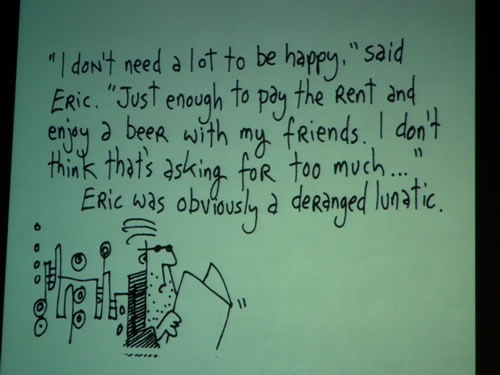 "I don't need a lot to be happy," said
Eric. "Just enough to pay the rent and
enjoy a beer with my friends. I don't
think that's asking for too much..."
Eric was obviously a deranged lunatic.